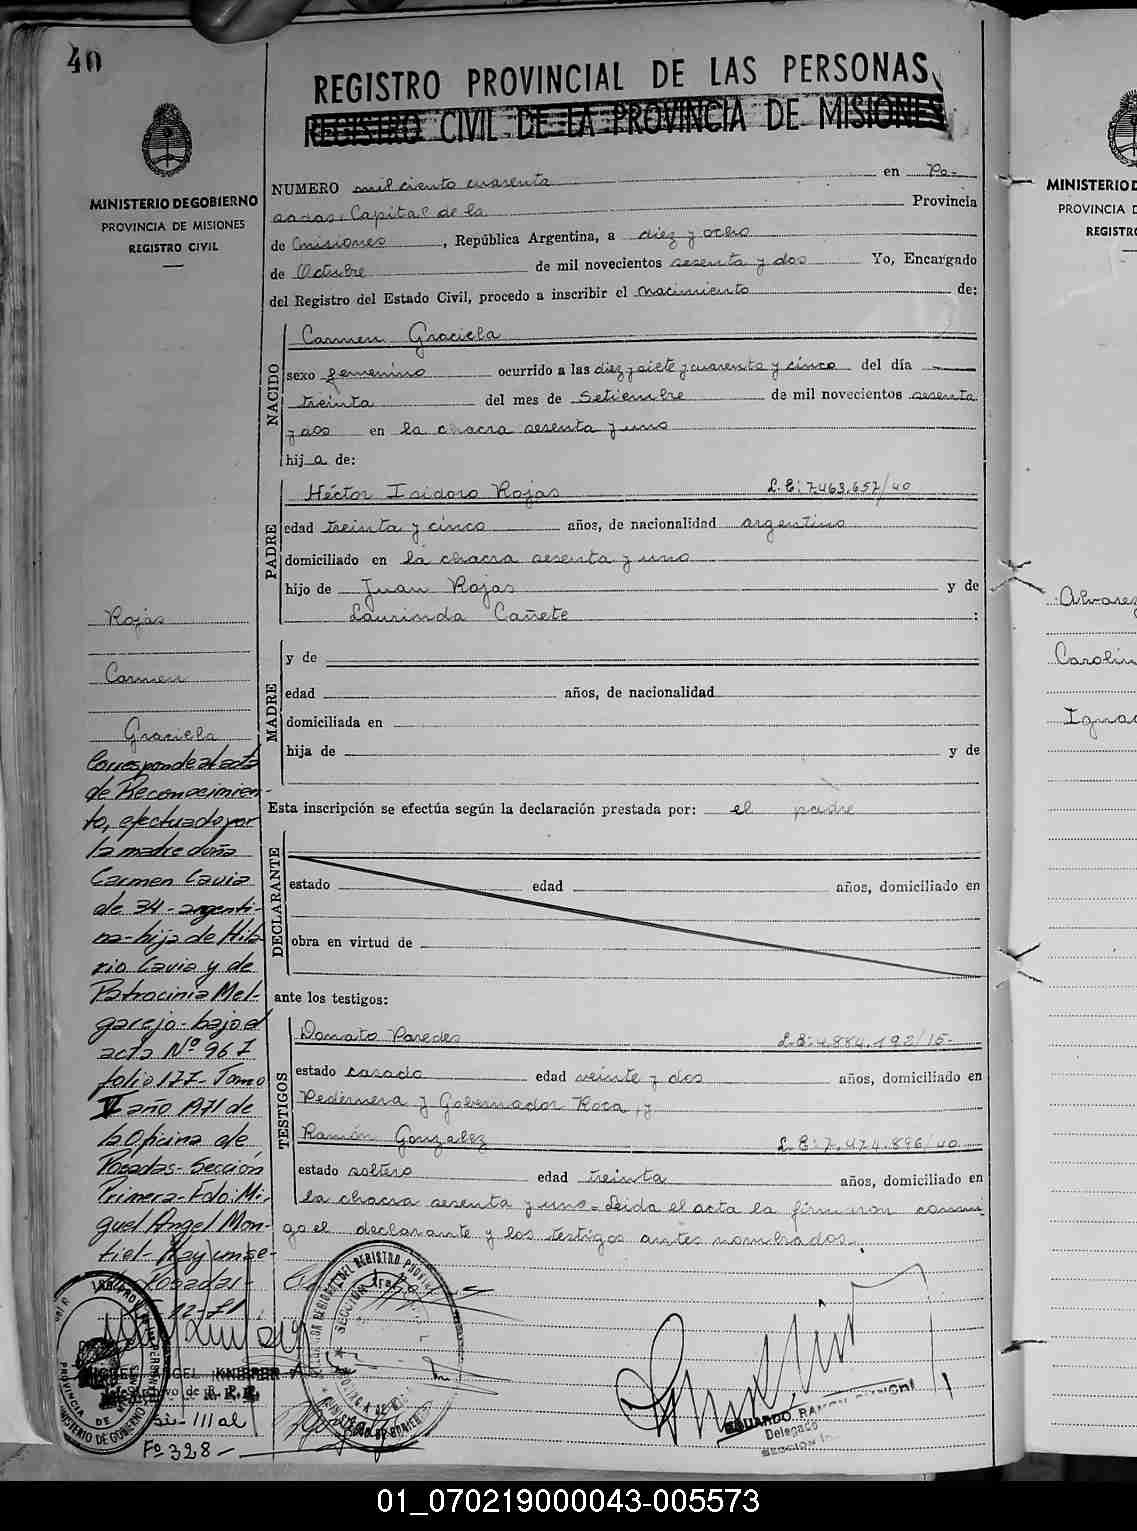 40
REGISTRO PROVINCIAL DE LAS PERSONAS
REGISTRO CIVIL DE LA PROVINCIA DE MISIONES
MINISTERIO DE GOBIERNO
PROVINCIA DE MISIONES
REGISTRO CIVIL
NUMERO mil ciento cuarenta en Po-
sadas, Capital de la Provincia
de Misiones, República Argentina, a diez y ocho
de Octubre de mil novecientos sesenta y dos Yo, Encargado
del Registro del Estado Civil, procedo a inscribir el nacimiento de:
NACIDO
Carmen Graciela
sexo femenino ocurrido a las diez y siete y cuarenta y cinco del día
treinta del mes de Setiembre de mil novecientos sesenta
y dos en la chacra sesenta y uno
hija de:
PADRE
Héctor Isidoro Rojas L.E: 7.463.657/40
edad treinta y cinco años, de nacionalidad argentino
domiciliado en la chacra sesenta y uno
hijo de Juan Rojas y de
Laurinda Cañete :
MADRE
y de
edad años, de nacionalidad
domiciliada en
hija de y de
Esta inscripción se efectúa según la declaración prestada por: el padre
DECLARANTE
estado edad años, domiciliado en
obra en virtud de
ante los testigos:
TESTIGOS
Donato Paredes L.E: 4.884.192/15-
estado casado edad veinte y dos años, domiciliado en
Pedernera y Gobernador Roca, y
Ramón Gonzalez L.E: 7.474.896/40
estado soltero edad treinta años, domiciliado en
la chacra sesenta y uno. Leida el acta la firmaron conmi-
go el declarante y los testigos antes nombrados.
Rojas
Carmen
Graciela
Corresponde al acta
de Reconocimien-
to, efectuado por
la madre doña
Carmen Cavia
de 34- argenti-
na- hija de Hila
rio Cavia y de
Patrocinia Mel-
garejo- bajo el
acta Nº 967
folio 177- Tomo
V año 1971 de
la Oficina de
Posadas- Sección
Primera- Fdo: Mi-
guel Angel Mon-
tiel- Hay un se-
Posadas-
12-71
Fº 328-
EDUARDO RAMON
Delegado
SECCION
MINISTERIO D
PROVINCIA D
REGISTRO
Alvarez
Carolin
Ignac
01_070219000043-005573